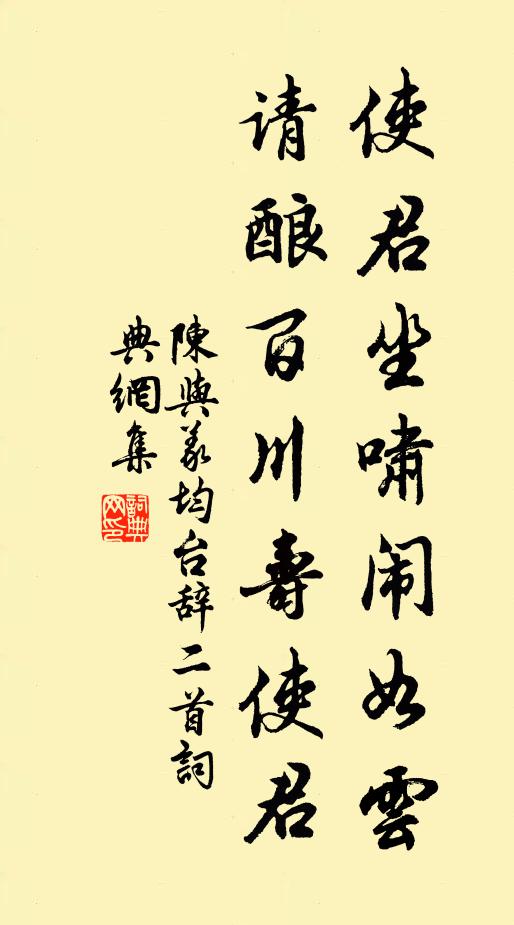 使君坐啸闹如雲
请酿百川壽使君
陳與義均台辞二首詞
典網集
詞典網印